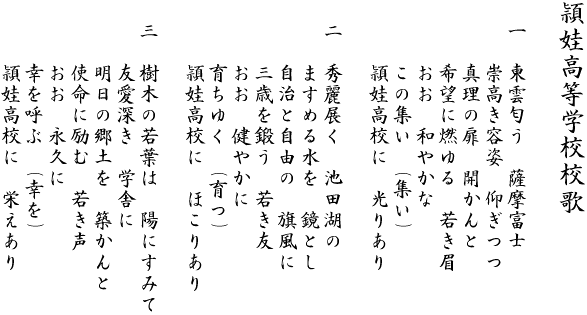 頴娃高等学校校歌
一　東雲匂う　薩摩富士
崇高き容姿　仰ぎつつ
真理の扉　開かんと
希望に燃ゆる　若き眉
おお　和やかな
この集い（集い）
頴娃高校に　光りあり
二　秀麗展く　池田湖の
ますめる水を　鏡とし
自治と自由の　旗風に
三歳を鍛う　若き友
おお　健やかに
育ちゆく（育つ）
頴娃高校に　ほこりあり
三　樹木の若葉は　陽にすみて
友愛深き　学舎に
明日の郷土を　築かんと
使命に励む　若き声
おお　永久に
幸を呼ぶ（幸を）
頴娃高校に　栄えあり